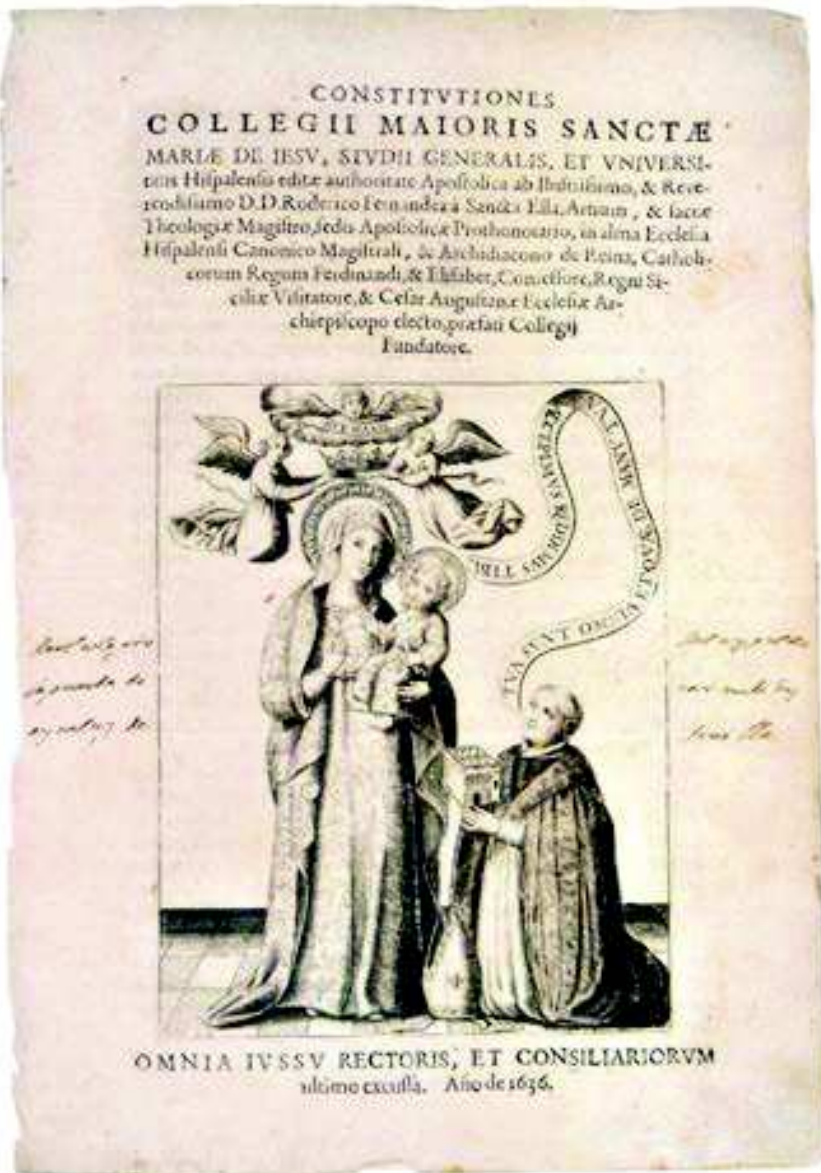 CONSTITVTIONES
COLLEGII MAIORIS SANCTÆ
MARIÆ DE IESV, STVDII GENERALIS, ET VNIVERSI-
tatis Hiſpalenſis editæ authoritate Apoſtolica ab Illuſtriſsimo, & Reue-
rendiſsimo D.D. Roderico Fernandez a Sancta Ella, Artium, & ſacræ
Theologiæ Magiſtro, ſedis Apoſtolicæ Prothonotario, in alma Eccleſia
Hiſpalenſi Canonico Magiſtrali, & Archidiacono de Reina, Catholi-
corum Regum Ferdinandi, & Eliſabet, Confeſſore, Regni Si-
ciliæ Viſitatore, & Ceſar Auguſtanæ Eccleſiæ Ar-
chiepiſcopo electo, præfati Collegij
Fundatore.
ACCEPIMVS REDDIMVS TIBI
QVÆ DE MANV TVA
TVA SVNT
OMNIA IVSSV RECTORIS, ET CONSILIARIORVM
vltimo excuſſa. Año de 1636.